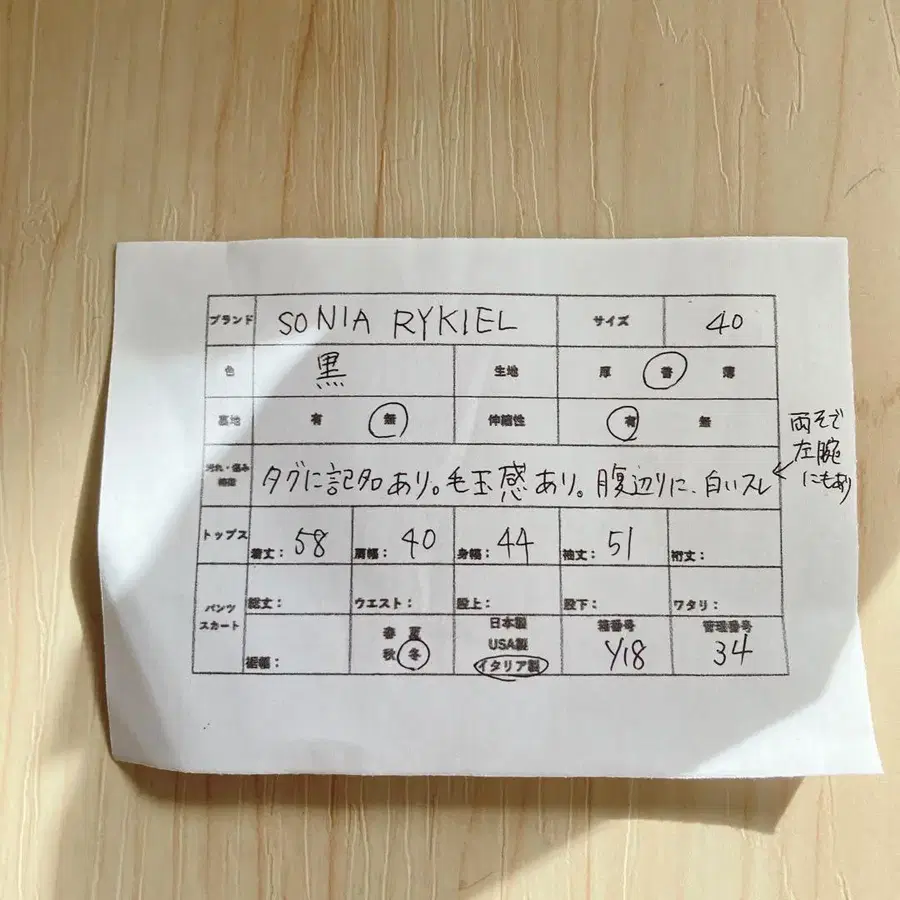 ブランド SONIA RYKIEL サイズ 40
色 黒 生地 厚 普 薄
裏地 有 無 伸縮性 有 無
汚れ・傷み
タグに記名あり。毛玉感あり。腹辺りに、白いスレ
両そで
左腕
にもあり
トップス 着丈: 58 肩幅: 40 身幅: 44 袖丈: 51 裄丈:
パンツ
スカート
総丈: ウエスト: 股上: 股下: ワタリ:
裾幅:
春 夏
秋 冬
日本製
USA製
イタリア製
箱番号
Y18
管理番号
34